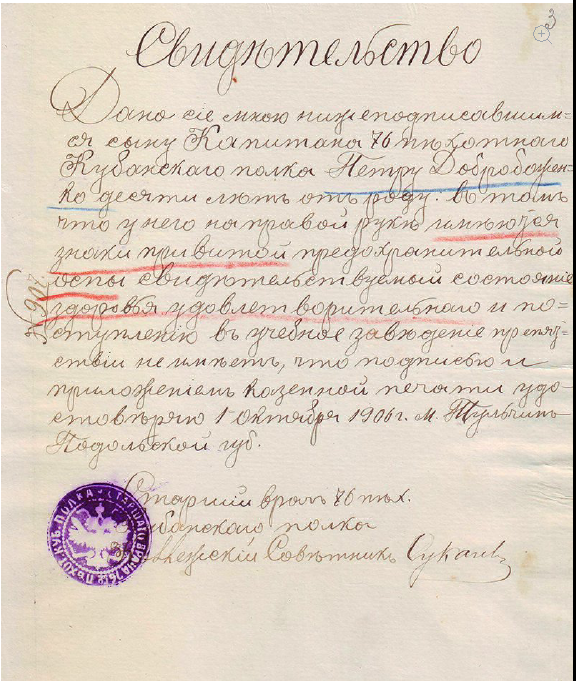 Свидѣтельство
Дано сіе мною нижеподписавшим=
ся сыну Капитана 76 пѣхотнаго
Кубанскаго полка Петру Доброboжен=
ко десяти лѣтъ отъ роду. въ томъ
что у него на правой рукѣ имѣются
знаки привитой предохранительной
оспы свидѣтельствуемый состояніе
здоровья удовлетворительнаго и по=
ступленію въ учебное заведеніе препят=
ствій не имѣетъ, что подписью и
приложеніемъ казенной печати удо=
стовѣряю 1 октября 1906 г. М. Тульчинъ
Подольской губ.
Старшій врачъ 76 пѣх.
Кубанскаго полка
Совѣтникъ
СТАРШАГО ВРАЧА 76 ПѢХОТ. КУБ. ПОЛКА